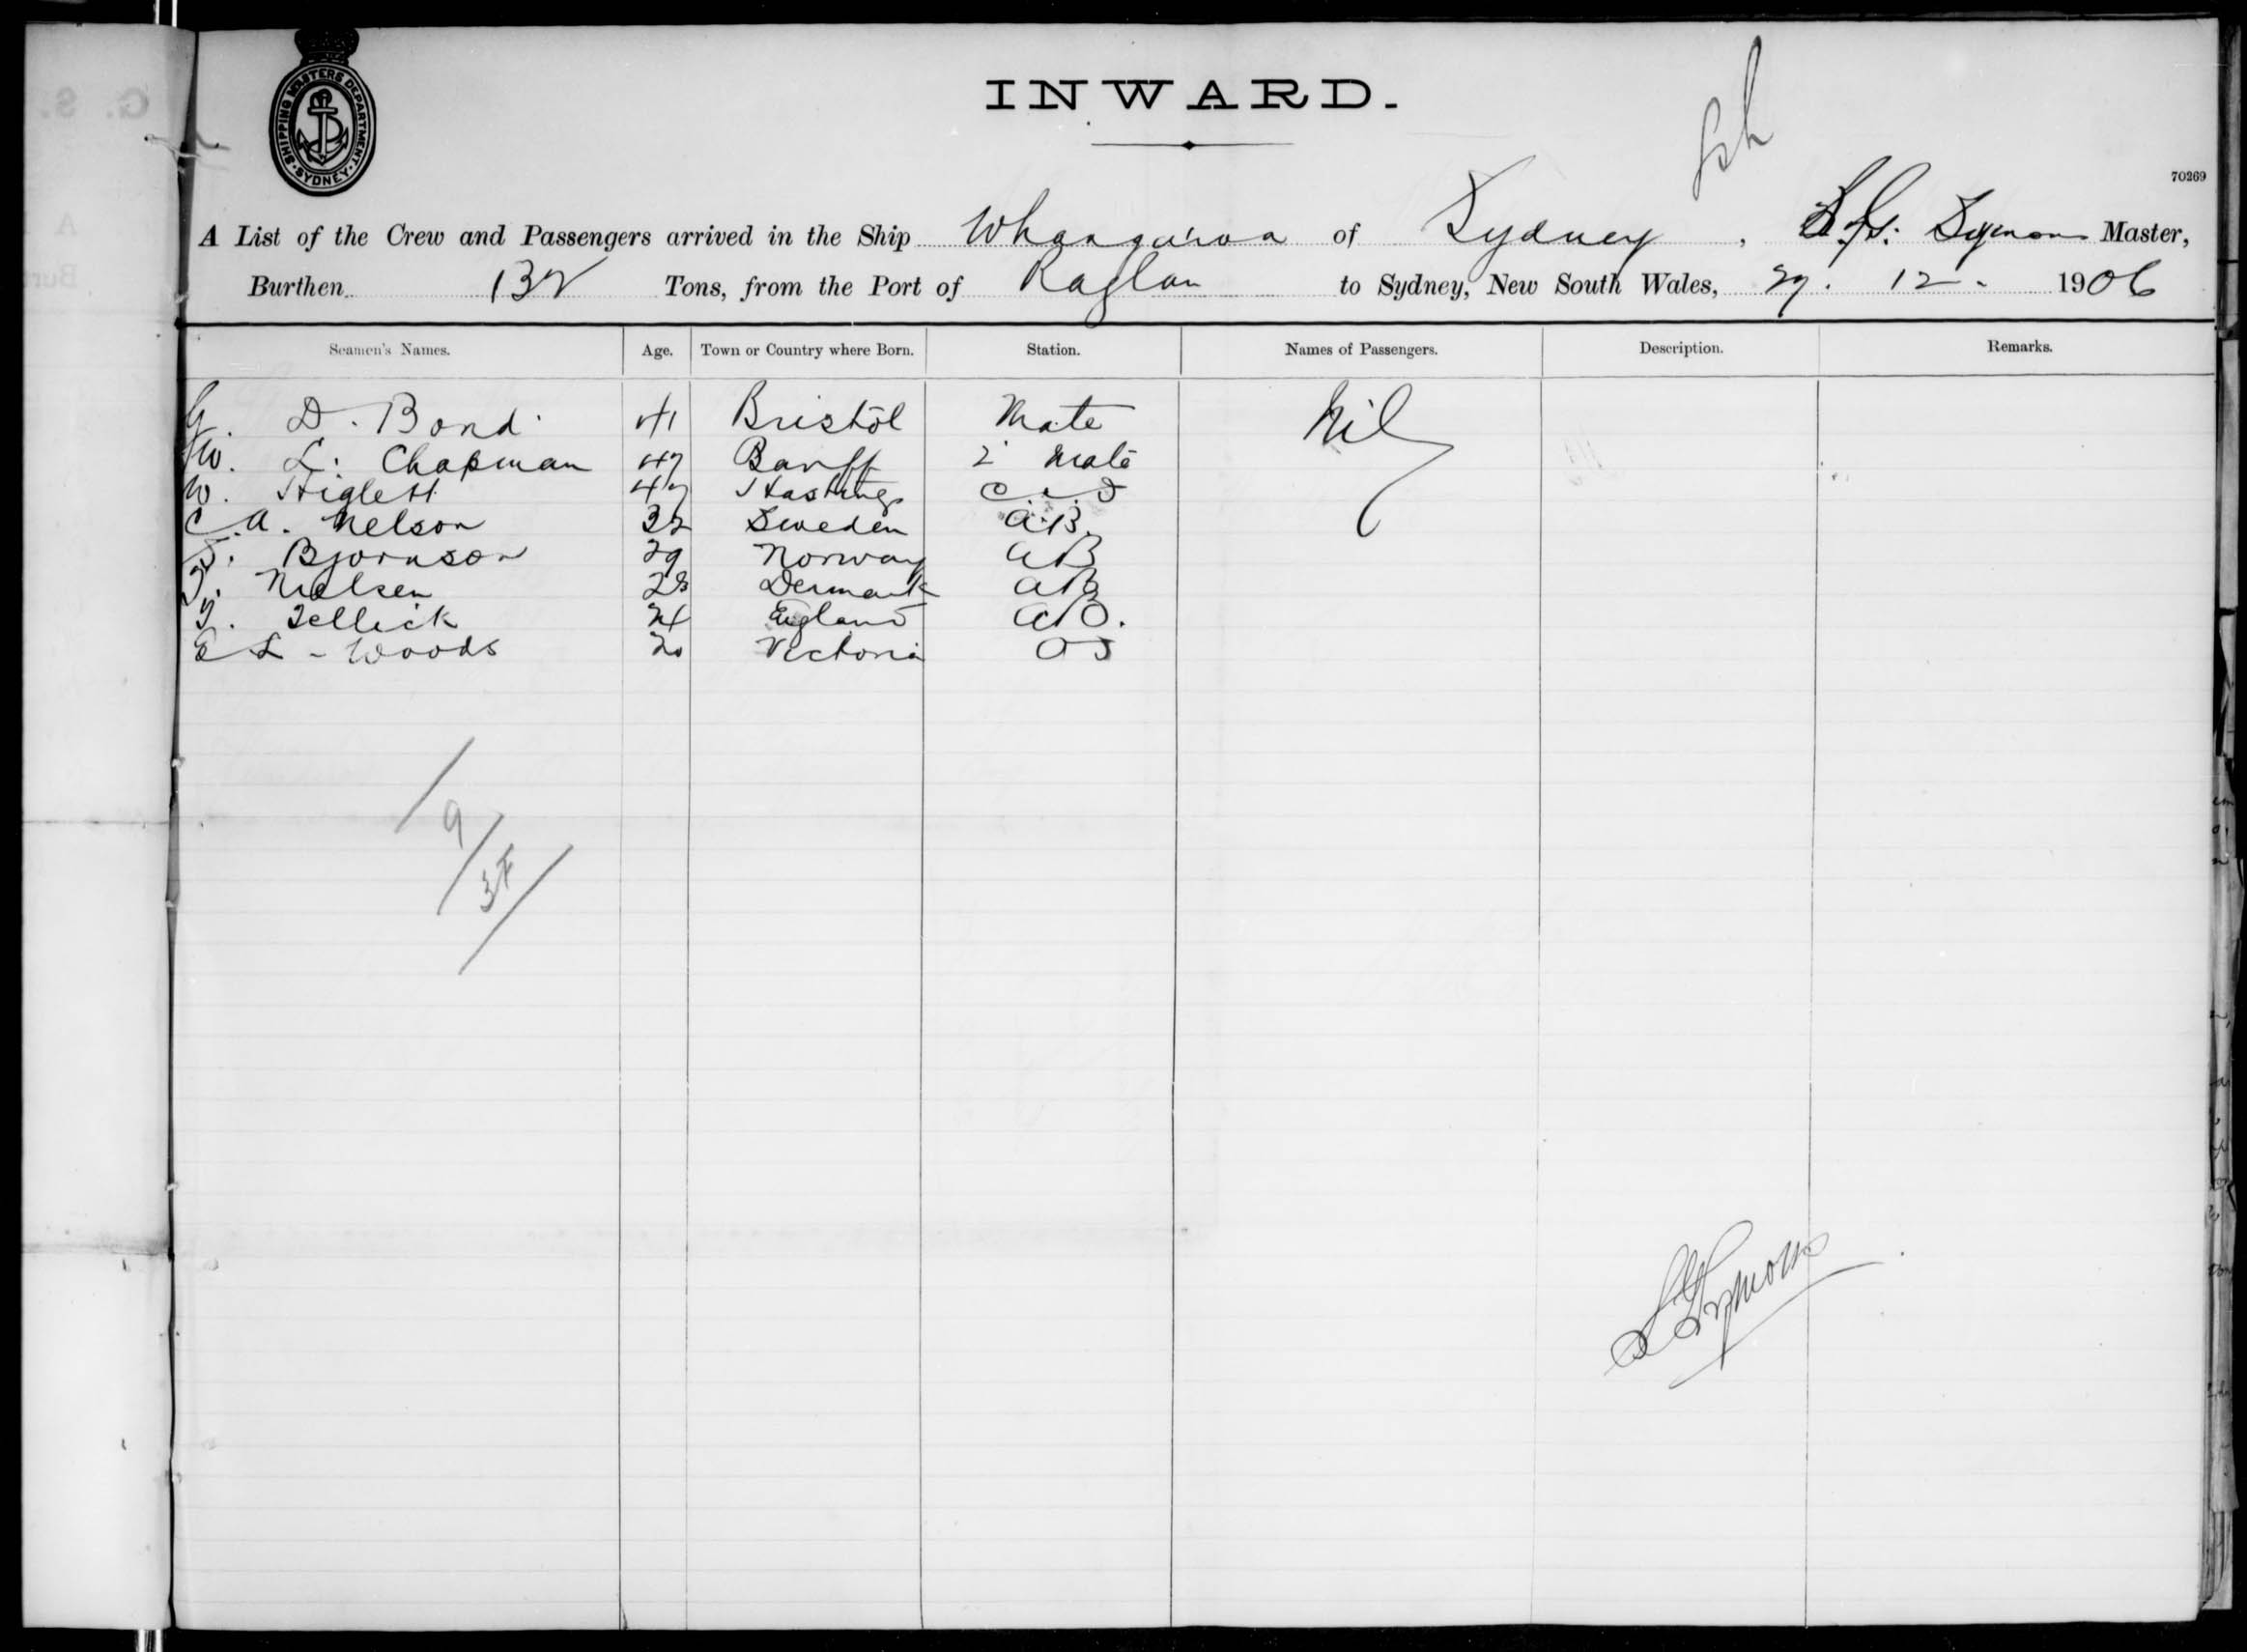 SHIPPING MASTERS DEPARTMENT · SYDNEY ·
INWARD.
Sch
70269
A List of the Crew and Passengers arrived in the Ship Whangaroa of Sydney, Symons Master,
Burthen 132 Tons, from the Port of Raglan to Sydney, New South Wales, 29. 12 - 1906
Seamen's Names. Age. Town or Country where Born. Station. Names of Passengers. Description. Remarks.
G. D. Bond 41 Bristol Mate Nil
W. L. Chapman 47 Banff 2 Mate
W. Higlett 47 Hastings C. & S
C. A. Nelson 32 Sweden A.B.
Bjornson 29 Norway AB
Nielsen 28 Denmark AB
Tellick 24 England AB.
E L - Woods 20 Victoria OS
9/
3F/
Symons